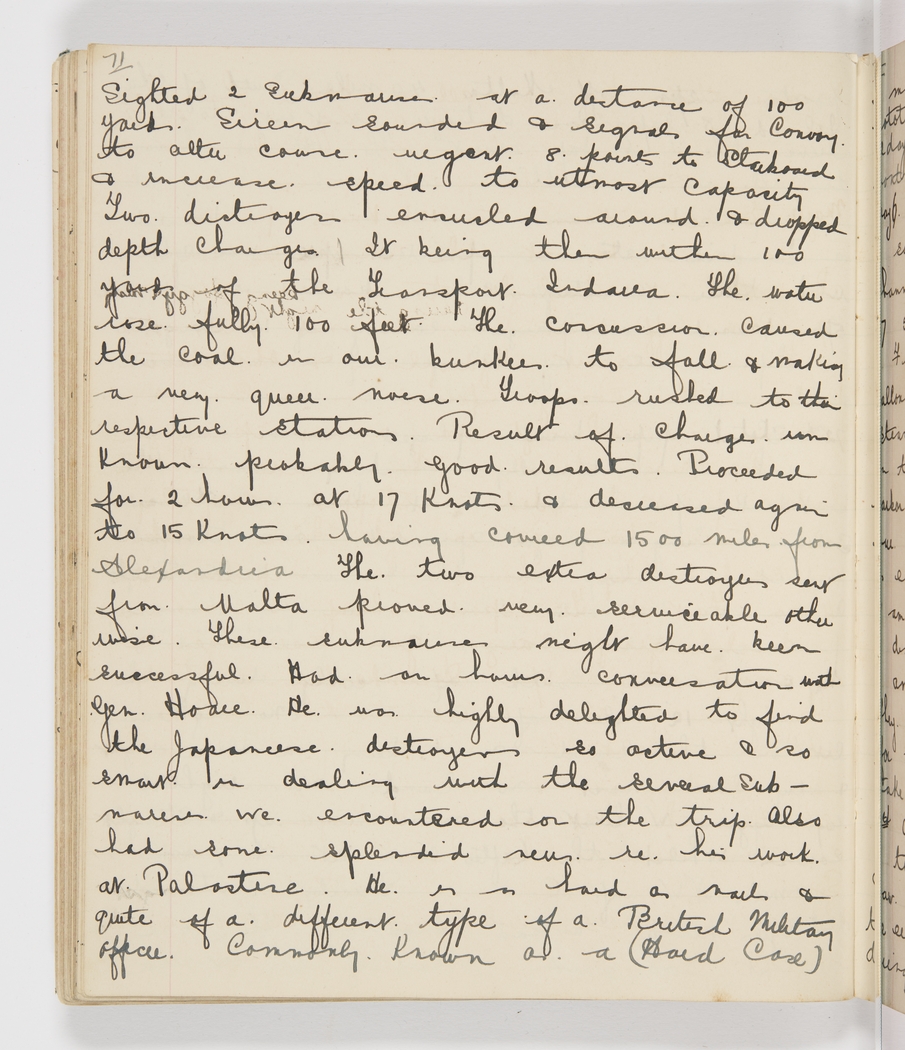 71
Sighted 2 Submarines. at a. distance of 100
yards. Sireen sounded & signals for Convoy.
to alter course. urgent. 8. points to Starboard
& increase. speed. to utmost Capacity
Two. distroyers encircled around. & dropped
depth Charges. It being then within 100
yards of the Transport. Indarra. The. water
rose. fully. 100 feet. The. Concussion. Caused
the coal. in our. bunkers. to fall. & making
a very. queer. noise. Troops. rushed to their
respective stations. Result of. Charges. un
Known. probably. good. results. Proceeded
for. 2 hours. at 17 Knots. & decreased again
to 15 Knots. having covered 1500 miles from
Alexandria The. two extra distroyers sent
from. Malta proved. very. serviceable other
wise. These. submarines might have. been
successful. Had. an hours. conversation with
Gen. Hodie. He. was. highly delighted to find
the Japaneese. distroyers so active & so
smart. in dealing with the several Sub-
marines. we. encountered on the trip. Also
had some. splendid news. re. his work.
at Palastine. He. is as hard as nails &
quite of a. different. type of a. British Military
officer. Commonly. Known as. a (Hard Case)